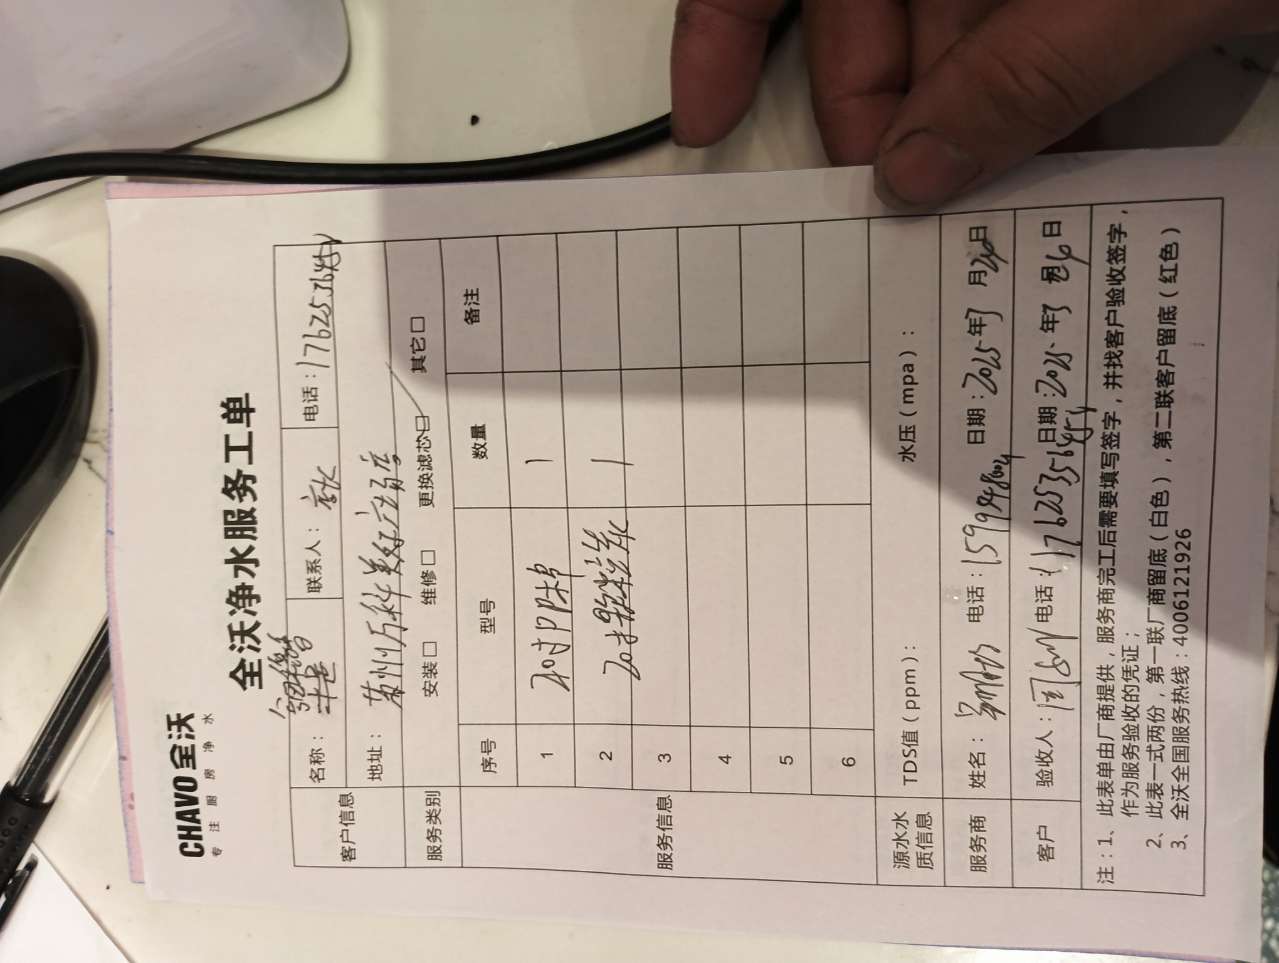 CHAVO全沃
专注厨房净水
全沃净水服务工单
客户信息 名称： 联系人： 电话：
地址：苏州万科美好广场
服务类别 安装□ 维修□ 更换滤芯□ 其它□
服务信息 序号 型号 数量 备注
1 20寸PP棉 1
2 20寸颗粒炭 1
3
4
5
6
源水水质信息 TDS值（ppm）： 水压（mpa）：
服务商 姓名： 电话： 日期：2025年3月26日
客户 验收人： 电话：17625356454 日期：2025年3月26日
注：1、此表单由厂商提供，服务商完工后需要填写签字，并找客户验收签字，
作为服务验收的凭证；
2、此表一式两份，第一联厂商留底（白色），第二联客户留底（红色）
3、全沃全国服务热线：4006121926